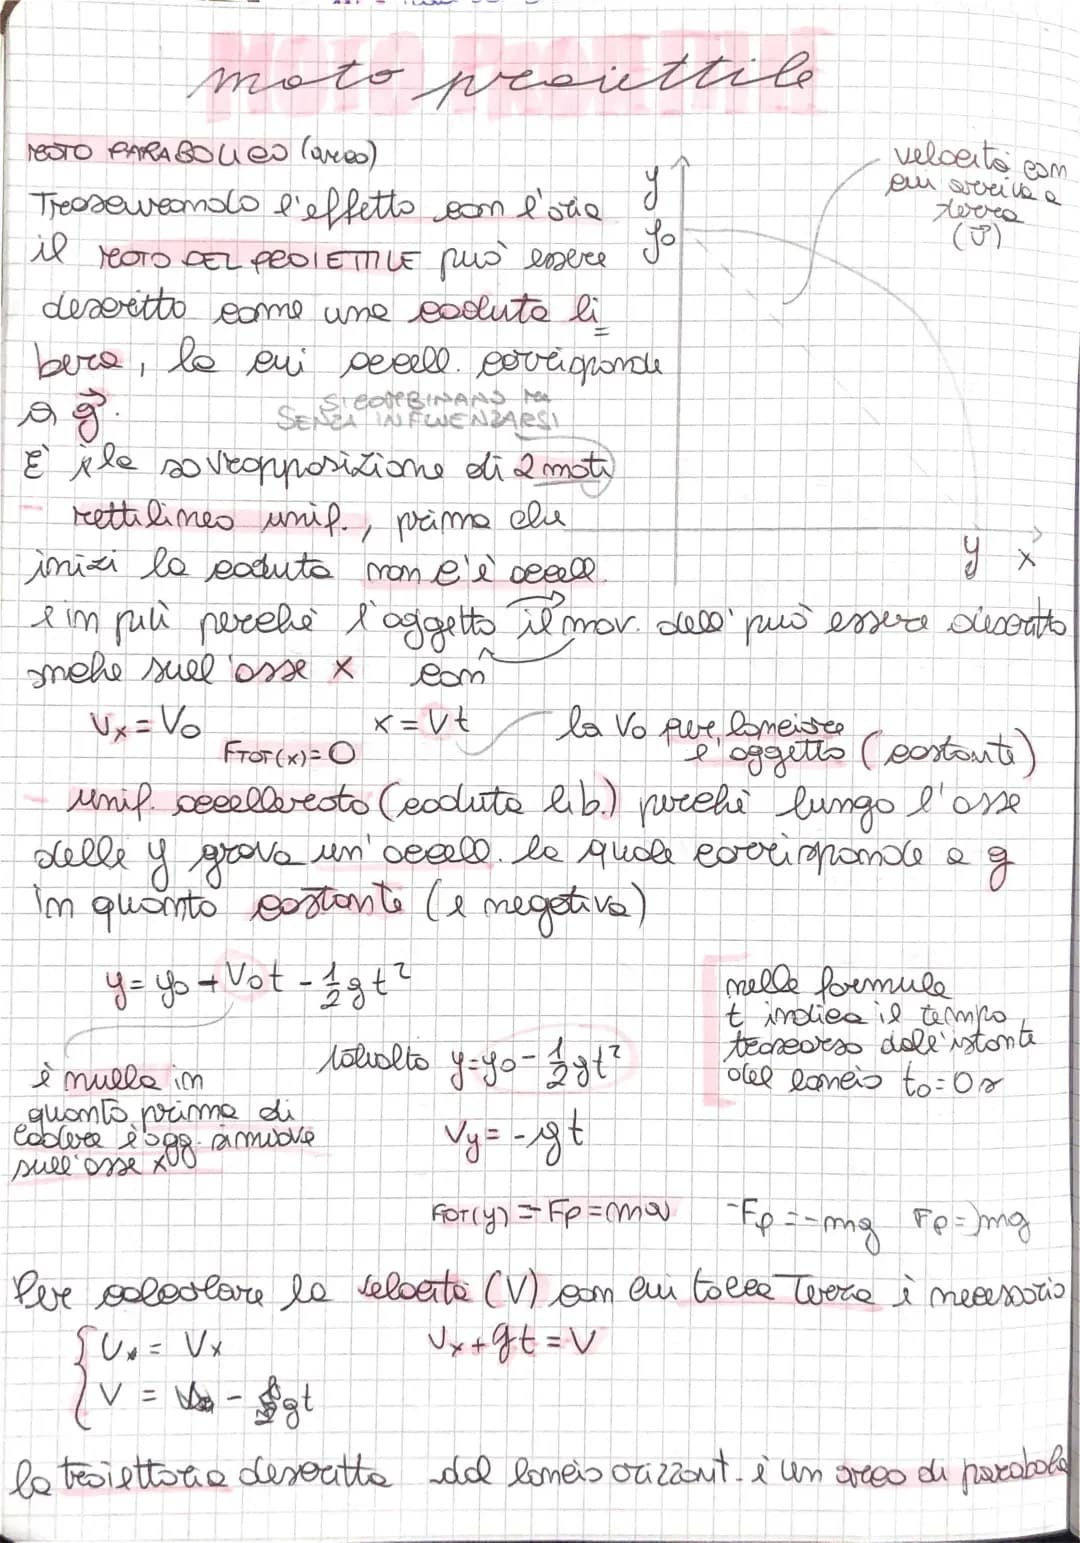 MOTO PROIETTILE
moto proiettile
MOTO PARABOLICO (arco)
Trascurando l'effetto con l'aria
il MOTO DEL PROIETTILE può essere
descritto come una caduta li
bera, la cui accell. corrisponde
a g⃗.
SI COMBINANO MA
SENZA INFLUENZARSI
È la sovrapposizione di 2 moti
- rettilineo unif., prima che
inizi la caduta non c'è accell.
e in più perchè l'oggetto il mov. dell' può essere discritto
anche sull'asse x con
Vx = Vo
x = Vt
FTOT(x) = 0
la Vo per lanciare
l'oggetto (costante)
- unif. accellerato (caduta lib.) perchè lungo l'asse
delle y grava un'accell. la quale corrisponde a g
in quanto costante (e negativa)
y = yo + Vot - 1/2 gt²
è nulla in
quanto prima di
cadere l'ogg. si muove
sull'asse x
talvolta y = yo - 1/2 gt²
Vy = -gt
nelle formule
t indica il tempo
trascorso dall'istante
del lancio to = 0 s
FTOT(y) = Fp = ma -Fp = -mg Fp = mg
Per calcolare la velocità (V) con cui tocca Terra è necessario
Vx = Vx
Vx + gt = V
V = - gt
la traiettoria descritta dal lancio orizzont. è un arco di parabola
y
yo
velocità con
cui arriva a
terra
(v⃗)
y x